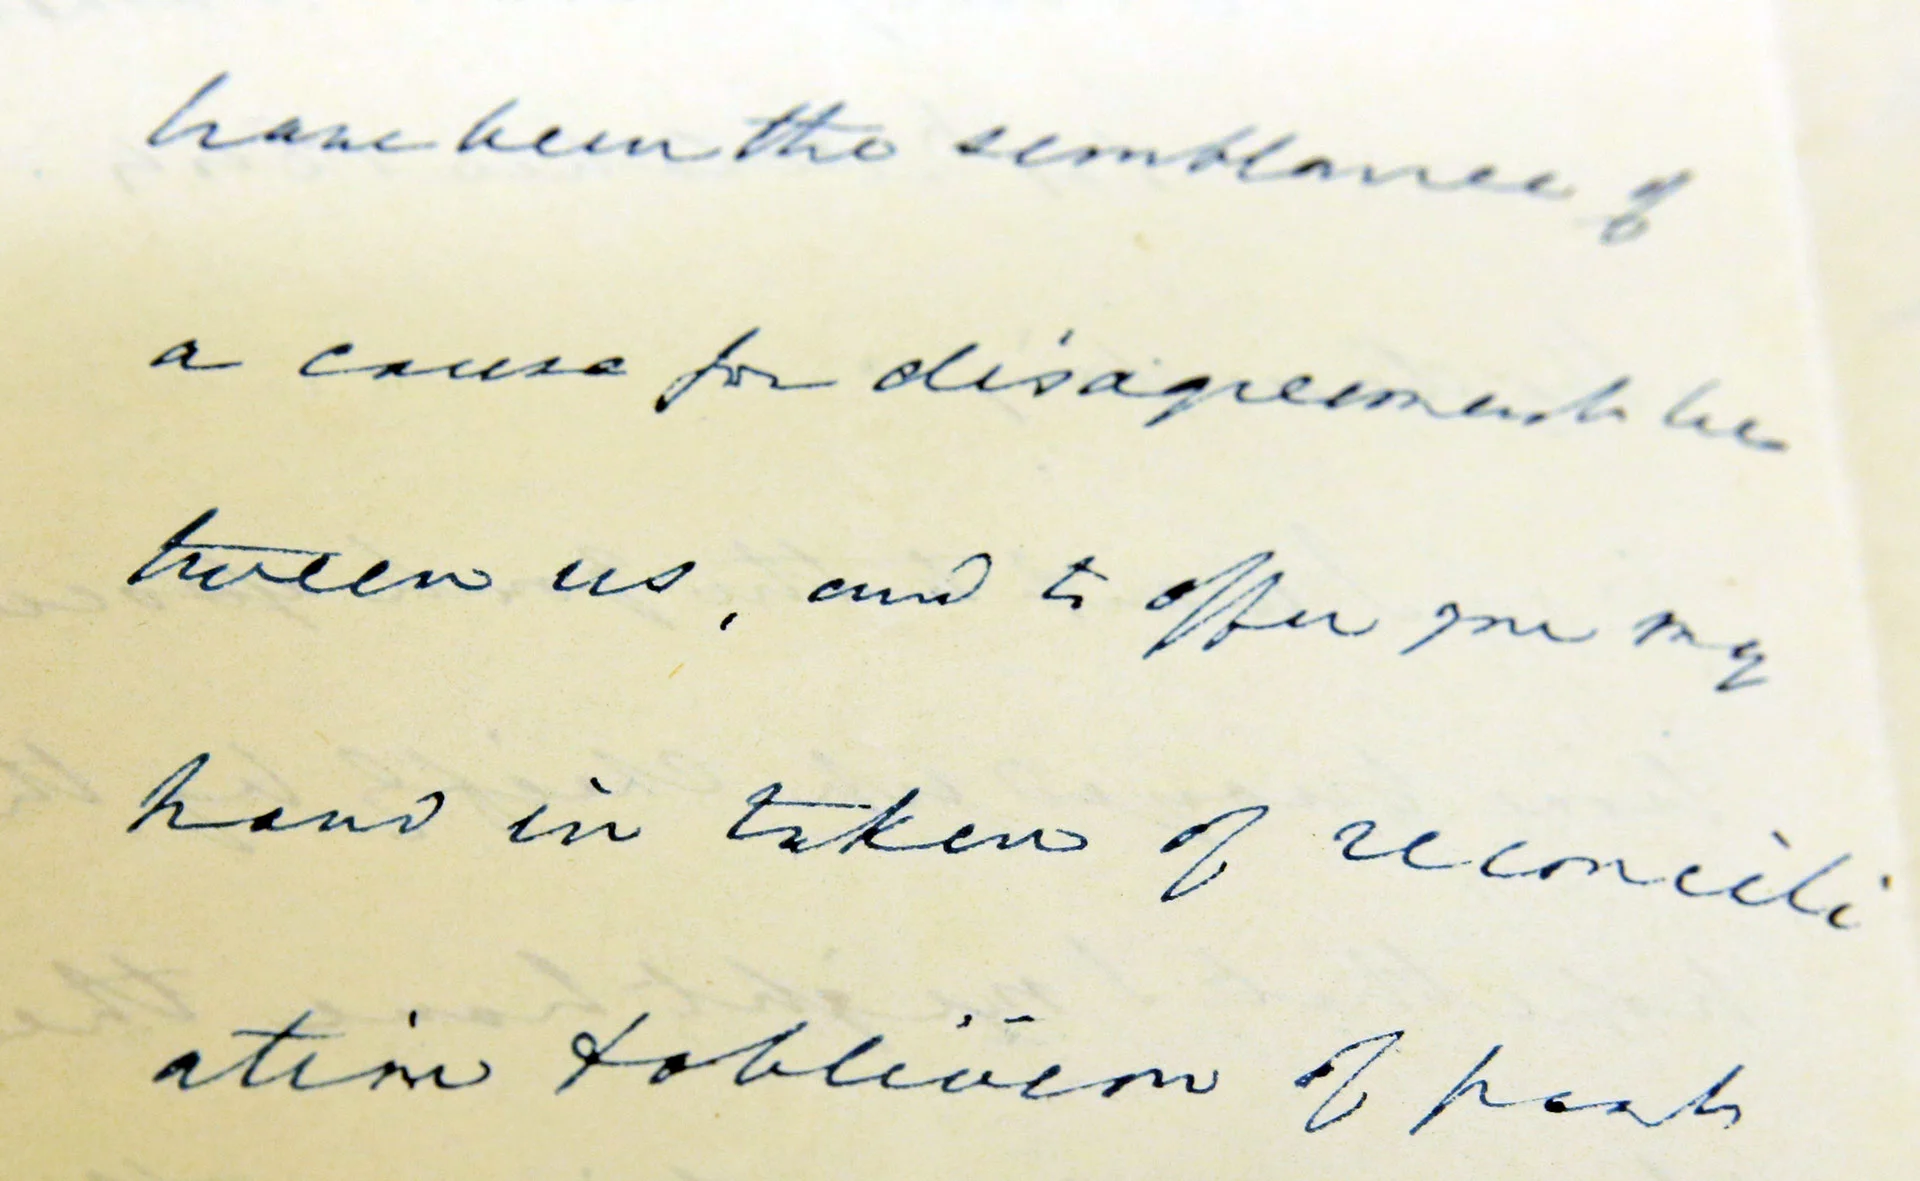 have been the semblance of
a cause for disagreement be
tween us, and to offer you my
hand in token of reconcili
ation & oblivion of past